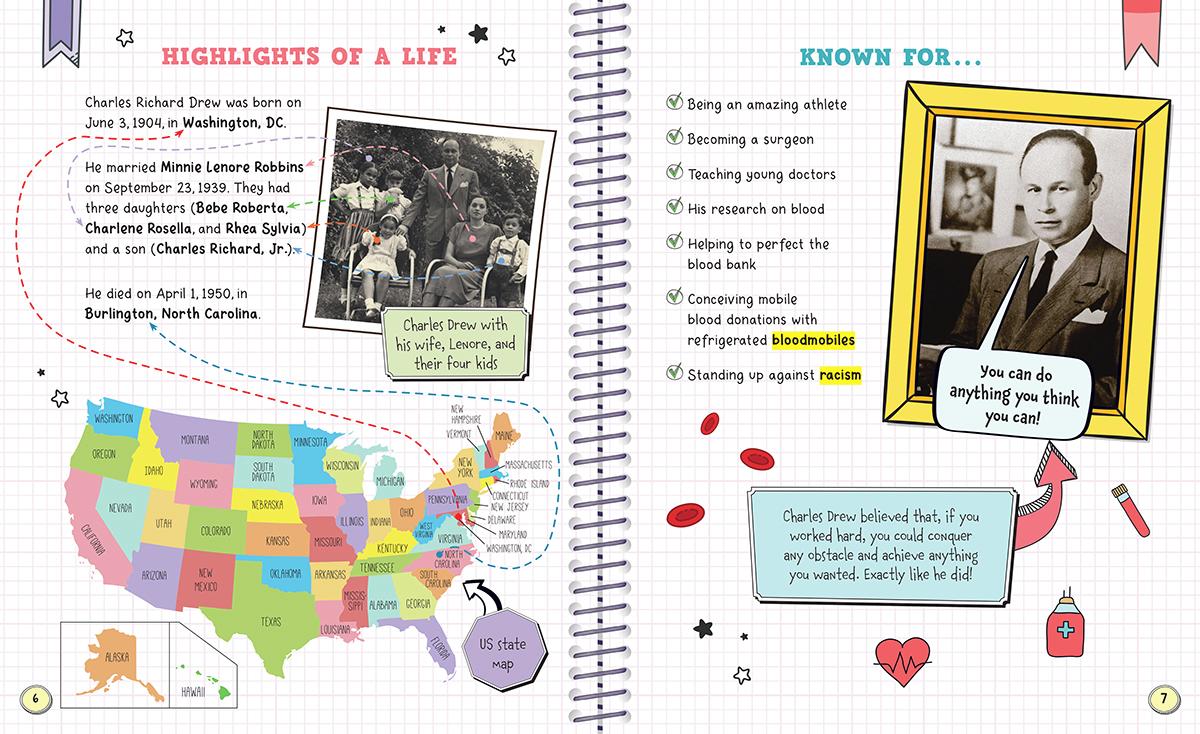 HIGHLIGHTS OF A LIFE
Charles Richard Drew was born on
June 3, 1904, in Washington, DC.
He married Minnie Lenore Robbins
on September 23, 1939. They had
three daughters (Bebe Roberta,
Charlene Rosella, and Rhea Sylvia)
and a son (Charles Richard, Jr.).
He died on April 1, 1950, in
Burlington, North Carolina.
Charles Drew with
his wife, Lenore, and
their four kids
WASHINGTON
OREGON
CALIFORNIA
IDAHO
NEVADA
MONTANA
WYOMING
UTAH
ARIZONA
COLORADO
NEW
MEXICO
NORTH
DAKOTA
SOUTH
DAKOTA
NEBRASKA
KANSAS
OKLAHOMA
TEXAS
MINNESOTA
IOWA
MISSOURI
ARKANSAS
LOUISIANA
WISCONSIN
ILLINOIS
MICHIGAN
INDIANA
OHIO
KENTUCKY
TENNESSEE
MISSIS-
SIPPI
ALABAMA
GEORGIA
FLORIDA
SOUTH
CAROLINA
NORTH
CAROLINA
VIRGINIA
WEST
VIRGINIA
PENNSYLVANIA
NEW
YORK
VERMONT
NEW
HAMPSHIRE
MAINE
MASSACHUSETTS
RHODE ISLAND
CONNECTICUT
NEW JERSEY
DELAWARE
MARYLAND
WASHINGTON, DC
ALASKA
HAWAII
US state
map
6
KNOWN FOR...
Being an amazing athlete
Becoming a surgeon
Teaching young doctors
His research on blood
Helping to perfect the
blood bank
Conceiving mobile
blood donations with
refrigerated bloodmobiles
Standing up against racism
You can do
anything you think
you can!
Charles Drew believed that, if you
worked hard, you could conquer
any obstacle and achieve anything
you wanted. Exactly like he did!
7